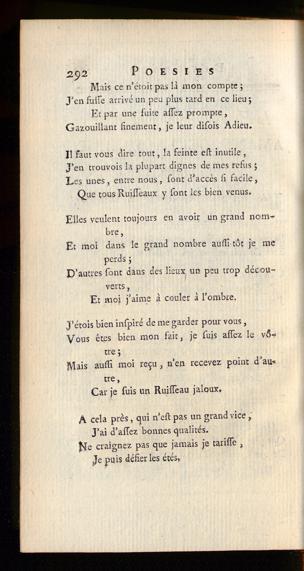 292 POESIES
Mais ce n'étoit pas là mon compte ;
J'en fusse arrivé un peu plus tard en ce lieu ;
Et par une fuite assez prompte,
Gazouillant finement, je leur disois Adieu.
Il faut vous dire tout, la feinte est inutile,
J'en trouvois la plupart dignes de mes refus ;
Les unes, entre nous, sont d'accès si facile,
Que tous Ruisseaux y sont les bien venus.
Elles veulent toujours en avoir un grand nom-
bre,
Et moi dans le grand nombre aussi-tôt je me
perds ;
D'autres sont dans des lieux un peu trop décou-
verts,
Et moi j'aime à couler à l'ombre.
J'étois bien inspiré de me garder pour vous,
Vous êtes bien mon fait, je suis assez le vô-
tre ;
Mais aussi moi reçu, n'en recevez point d'au-
tre,
Car je suis un Ruisseau jaloux.
A cela près, qui n'est pas un grand vice,
J'ai d'assez bonnes qualités.
Ne craignez pas que jamais je tarisse,
Je puis défier les étés.